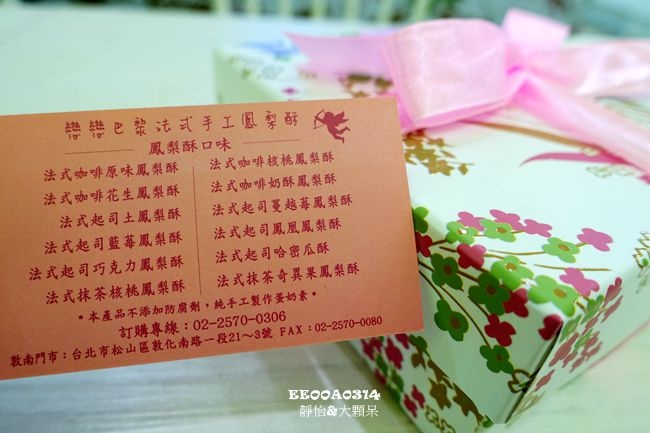 戀戀巴黎法式手工鳳梨酥
鳳梨酥口味
法式咖啡原味鳳梨酥
法式咖啡花生鳳梨酥
法式起司土鳳梨酥
法式起司藍莓鳳梨酥
法式起司巧克力鳳梨酥
法式抹茶核桃鳳梨酥
法式咖啡核桃鳳梨酥
法式咖啡奶酥鳳梨酥
法式起司蔓越莓鳳梨酥
法式起司鳳凰鳳梨酥
法式起司哈密瓜酥
法式抹茶奇異果鳳梨酥
•本產品不添加防腐劑，純手工製作蛋奶素•
訂購專線：02-2570-0306
敦南門市：台北市松山區敦化南路一段21～3號 FAX：02-2570-0080
EE00A0314
靜怡&大顆呆